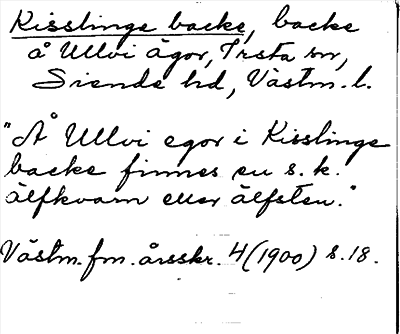 Kisslinge backe, backe
å Ullvi ägor, Irsta sn,
Siende hd, Västm. l.
"Å Ullvi egor i Kisslinge
backe finnes en s.k.
älfkvarn eller älfsten."
Västm. fm. årsskr. 4 (1900) s. 18.